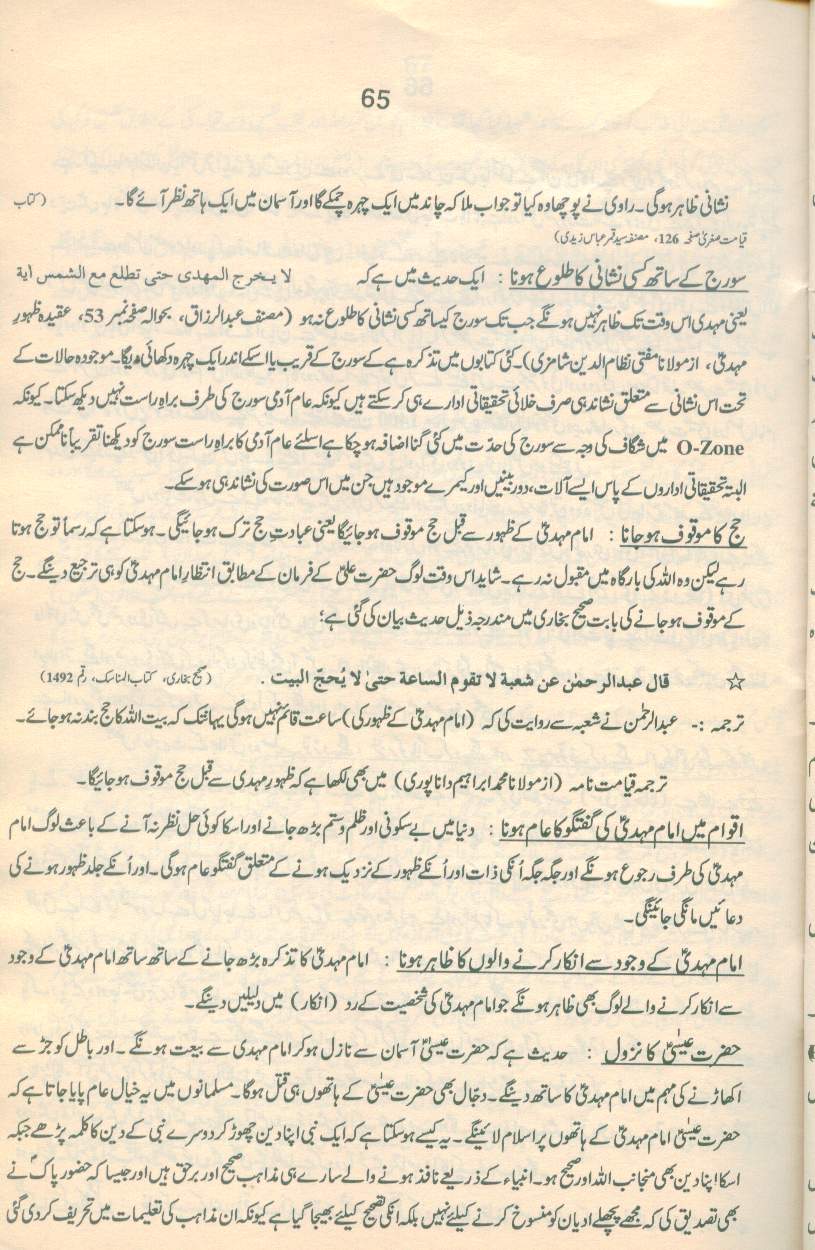 65
نشانی ظاہر ہوگی۔ راوی نے پوچھا وہ کیا تو جواب ملا کہ چاند میں ایک چہرہ چمکے گا اور آسمان میں ایک ہاتھ نظر آئے گا۔ (کتاب
قیامت صغریٰ صفحہ 126، مصنفہ سید قمر عباس زیدی)
سورج کے ساتھ کسی نشانی کا طلوع ہونا : ایک حدیث میں ہے کہ لا یخرج المهدی حتی تطلع مع الشمس آیة
یعنی مہدی اس وقت تک ظاہر نہیں ہونگے جب تک سورج کیساتھ کسی نشانی کا طلوع نہ ہو (مصنف عبدالرزاق، بحوالہ صفحہ نمبر 53، عقیدہ ظہورِ
مہدیؑ، از مولانا مفتی نظام الدین شامزی)۔ کئی کتابوں میں تذکرہ ہے کے سورج کے قریب یا اسکے اندر ایک چہرہ دکھائی دیگا۔ موجودہ حالات کے
تحت اس نشانی سے متعلق نشاندہی صرف خلائی تحقیقاتی ادارے ہی کر سکتے ہیں کیونکہ عام آدمی سورج کی طرف براہِ راست نہیں دیکھ سکتا۔ کیونکہ
O-Zone میں شگاف کی وجہ سے سورج کی حدّت میں کئی گنا اضافہ ہوچکا ہے اسلئے عام آدمی کا براہِ راست سورج کو دیکھنا تقریباً ناممکن ہے
البتہ تحقیقاتی اداروں کے پاس ایسے آلات، دوربینیں اور کیمرے موجود ہیں جن میں اس صورت کی نشاندہی ہوسکے۔
حج کا موقوف ہوجانا : امام مہدیؑ کے ظہور سے قبل حج موقوف ہوجائیگا یعنی عبادتِ حج ترک ہوجائیگی۔ ہوسکتا ہے کہ رسماً تو حج ہوتا
رہے لیکن وہ اللہ کی بارگاہ میں مقبول نہ رہے۔ شاید اس وقت لوگ حضرت علیؑ کے فرمان کے مطابق انتظارِ امام مہدیؑ کو ہی ترجیع دینگے۔ حج
کے موقوف ہوجانے کی بابت صحیح بخاری میں مندرجہ ذیل حدیث بیان کی گئی ہے؛
☆ قال عبدالرحمٰن عن شعبة لا تقوم الساعة حتیٰ لا یُحجّ البیت . (صحیح بخاری، کتاب المناسک، رقم 1492)
ترجمہ :- عبدالرحمٰن نے شعبہ سے روایت کی کہ (امام مہدیؑ کے ظہور کی) ساعت قائم نہیں ہوگی یہانتک کہ بیت اللہ کا حج بند نہ ہوجائے۔
ترجمہ قیامت نامہ (از مولانا محمد ابراہیم دانا پوری) میں بھی لکھا ہے کہ ظہورِ مہدی سے قبل حج موقوف ہوجائیگا۔
اقوام میں امام مہدیؑ کی گفتگو کا عام ہونا : دنیا میں بے سکونی اور ظلم و ستم بڑھ جانے اور اسکا کوئی حل نظر نہ آنے کے باعث لوگ امام
مہدیؑ کی طرف رجوع ہونگے اور جگہ جگہ اُنکی ذات اور اُنکے ظہور کے نزدیک ہونے کے متعلق گفتگو عام ہوگی۔ اور اُنکے جلد ظہور ہونے کی
دعائیں مانگی جائینگی۔
امام مہدیؑ کے وجود سے انکار کرنے والوں کا ظاہر ہونا : امام مہدیؑ کا تذکرہ بڑھ جانے کے ساتھ ساتھ امام مہدیؑ کے وجود
سے انکار کرنے والے لوگ بھی ظاہر ہونگے جو امام مہدیؑ کی شخصیت کے رد (انکار) میں دلیلیں دینگے۔
حضرت عیسیٰؑ کا نزول : حدیث ہے کہ حضرت عیسیٰؑ آسمان سے نازل ہوکر امام مہدی سے بیعت ہونگے۔ اور باطل کو جڑ سے
اکھاڑنے کی مہم میں امام مہدیؑ کا ساتھ دینگے۔ دجّال بھی حضرت عیسیٰؑ کے ہاتھوں ہی قتل ہوگا۔ مسلمانوں میں یہ خیال عام پایا جاتا ہے کہ
حضرت عیسیٰؑ امام مہدیؑ کے ہاتھوں پر اسلام لائینگے۔ یہ کیسے ہوسکتا ہے کہ ایک نبی اپنا دین چھوڑ کر دوسرے نبی کے دین کا کلمہ پڑھے جبکہ
اسکا اپنا دین بھی منجانب اللہ اور صحیح ہو۔ انبیاء کے ذریعے نافذ ہونے والے سارے ہی مذاہب صحیح اور برحق ہیں اور جیسا کہ حضور پاکؐ نے
بھی تصدیق کی کہ مجھے پچھلے ادیان کو منسوخ کرنے کیلئے نہیں بلکہ انکی تصحیح کیلئے بھیجا گیا ہے کیونکہ ان مذاہب کی تعلیمات میں تحریف کردی گئی